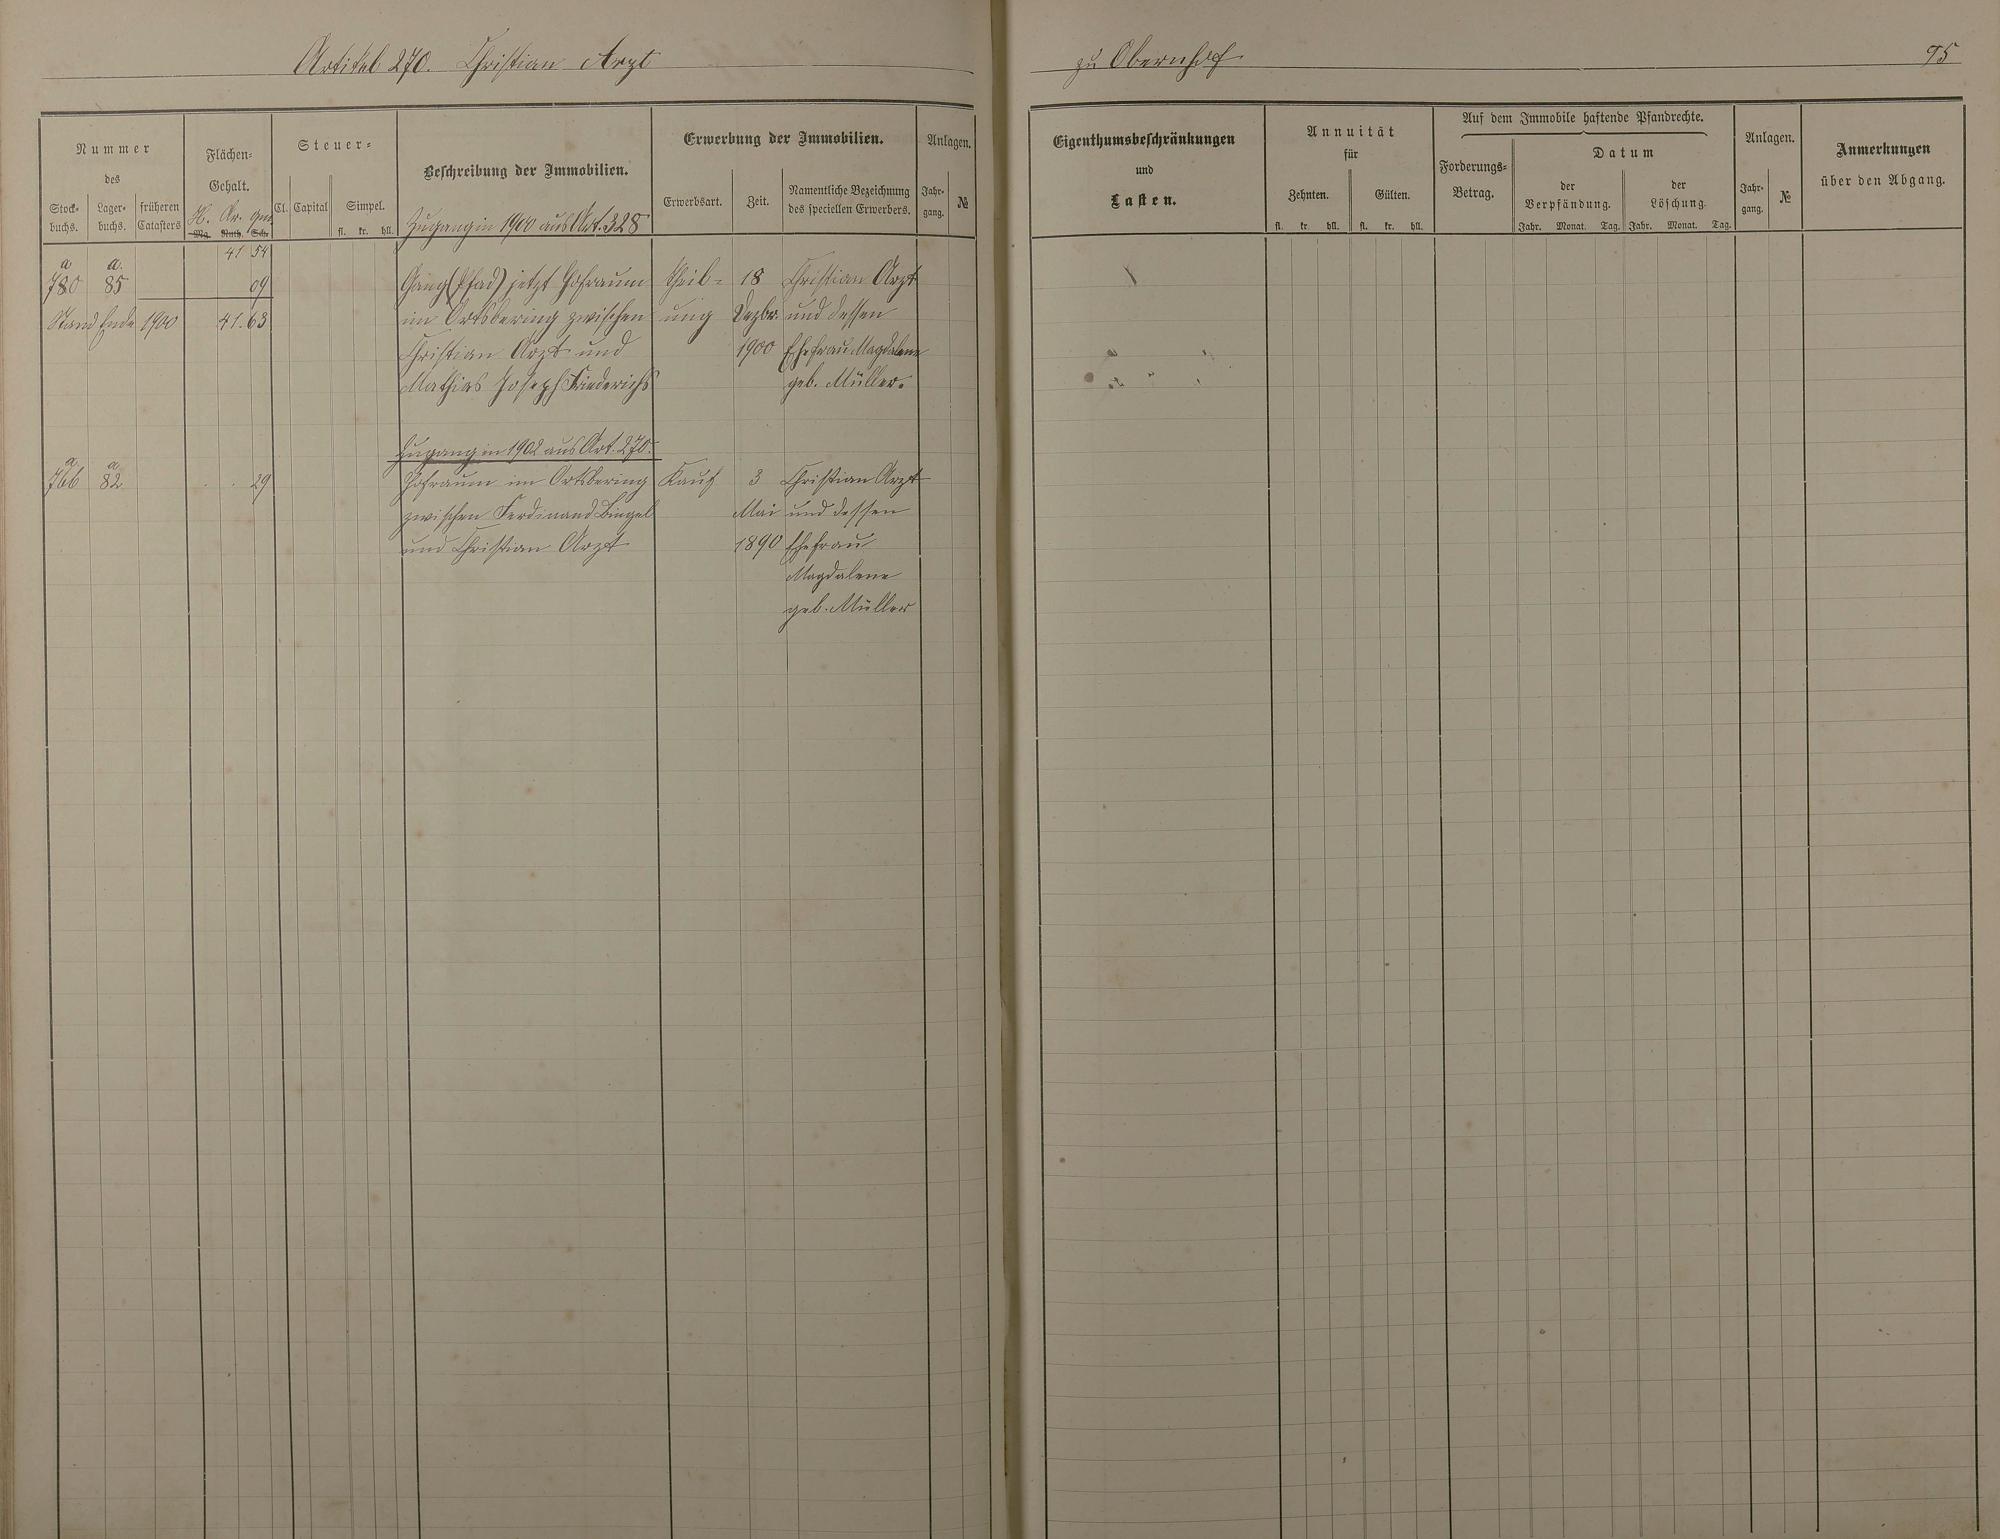 Artikel 270. Christian Arzt
zu Obernhof
95
Nummer
des
Stock-
buchs.
Lager-
buchs.
früheren
Catasters
Flächen-
Gehalt.
H. Ar. qm
Mg. Ruth. Sch.
Steuer-
Cl.
Capital
Simpel.
fl. kr. hll.
Beschreibung der Immobilien.
Zugang in 1900 aus Art. 328
Erwerbung der Immobilien.
Erwerbsart.
Zeit.
Namentliche Bezeichnung
des speciellen Erwerbers.
Anlagen.
Jahr-
gang.
№
Eigenthumsbeschränkungen
und
Lasten.
Annuität
für
Zehnten.
Gülten.
fl. kr. hll. fl. kr. hll.
Auf dem Immobile haftende Pfandrechte.
Forderungs-
Betrag.
Datum
der
Verpfändung.
der
Löschung.
Jahr. Monat. Tag. Jahr. Monat. Tag.
Anlagen.
Jahr-
gang.
№
Anmerkungen
über den Abgang.
41 54
a a.
780 85 09 Gang (Pfad) jetzt Hofraum Theil- 18 Christian Arzt
Stand Ende 1900 41.63 im Ortsbering zwischen ung Dezbr. und dessen
Christian Arzt und 1900 Ehefrau Magdalene
Mathias Joseph Friederichs geb. Müller.
Zugang in 1902 aus Art. 270.
a a
766 82 . . 29 Hofraum im Ortsbering Kauf 3 Christian Arzt
zwischen Ferdinand Bingel Mai und dessen
und Christian Arzt 1890 Ehefrau
Magdalene
geb. Müller